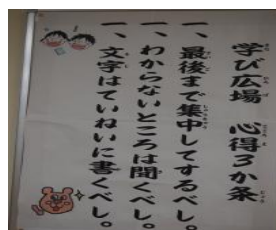 学び広場 心得3か条
一、最後まで集中してするべし。
一、わからないところは聞くべし。
一、文字はていねいに書くべし。